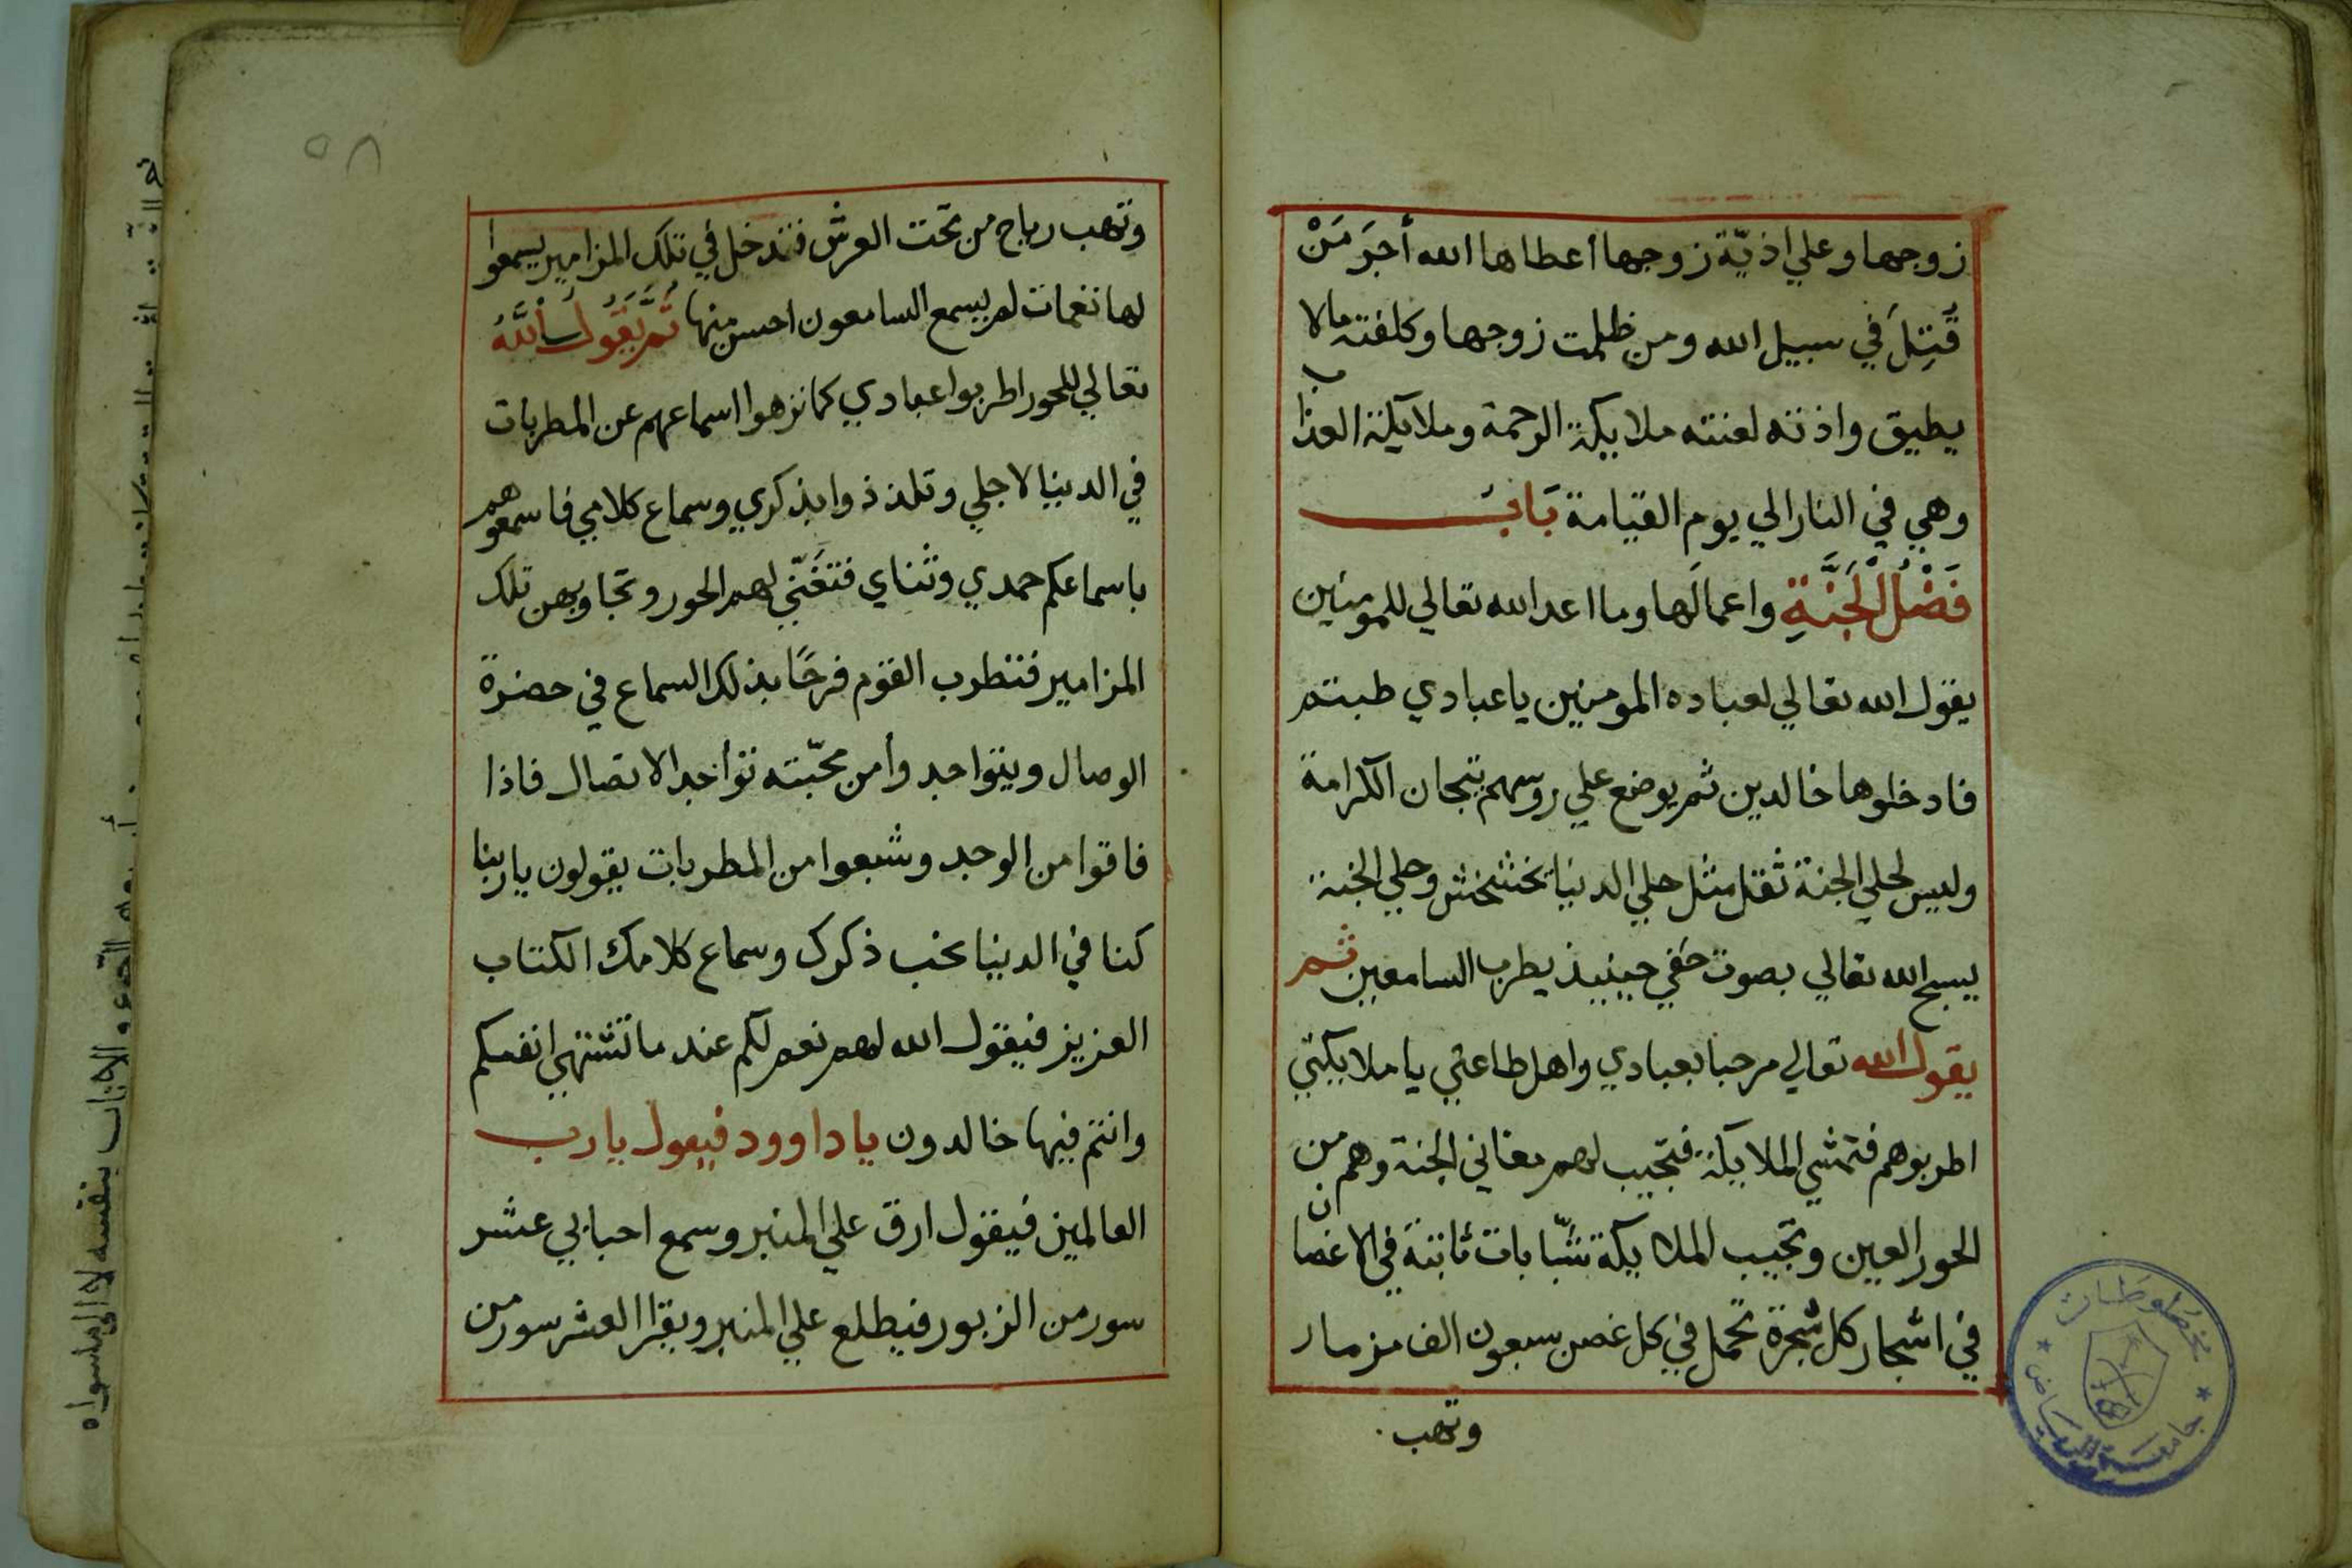 زوجها وعلي اذيّة زوجها أعطاها الله أجرَ مَنْ
قُتِلَ في سبيل الله ومن ظلمت زوجها وكلفته مالا
يطيق واذته لعنته ملايكة الرحمة وملايكة العذاب
وهي في النار الي يوم القيامة بَابُ
فَضْلُ الْجَنَّةِ واعمالَها وما اعد الله تعالي للمومنين
يقول الله تعالي لعباده المومنين يا عبادي طبتم
فادخلوها خالدين ثم يوضع علي روسهم تيجان الكرامة
وليس لحلي الجنة ثقل مثل حلي الدنيا بخشخش وحلي الجنة
يسبح الله تعالي بصوت خفي حينيذ يطرب السامعين ثم
يقول الله تعالي مرحبا بعبادي واهل طاعتي يا ملايكتي
اطربوهم فتمشي الملايكة فتجيب لهم مغاني الجنة وهم من
الحور العين وتجيب الملايكة شبّابات ثابتة في الاغصان
في اشجار كل شجرة تحمل في كل غصن سبعون الف مزمار
وتهب
٥٨
وتهب رياح من تحت العرش فتدخل في تلك المزامير يسمعوا
لها نغمات لم يسمع السامعون احسن منها ثُمَّ يَقُولُ اللَّهُ
تعالي للحور اطربوا عبادي كما نزهوا اسماعهم عن المطربات
في الدنيا لاجلي وتلذذوا بذكري وسماع كلامي فاسمعوهم
باسماعكم حمدي وثناي فتغَنّي لهم الحور وتجاوبهن تلك
المزامير فتطرب القوم فرحًا بذلك السماع في حضرة
الوصال ويتواجدوا من محّبته تواجد الاتصال فاذا
فاقوا من الوجد وشبعوا من المطربات يقولون يا ربنا
كنا في الدنيا نحب ذكرك وسماع كلامك الكتاب
العزيز فيقول الله لهم نعم لكم عند ما تشتهي انفسكم
وانتم فيها خالدون يا داوود فيقول يا رب
العالمين فيقول ارق علي المنبر وسمع احبابي عشر
سور من الزبور فيطلع علي المنبر ويقرا العشر سور من
مخطوطات
جامعة الرياض